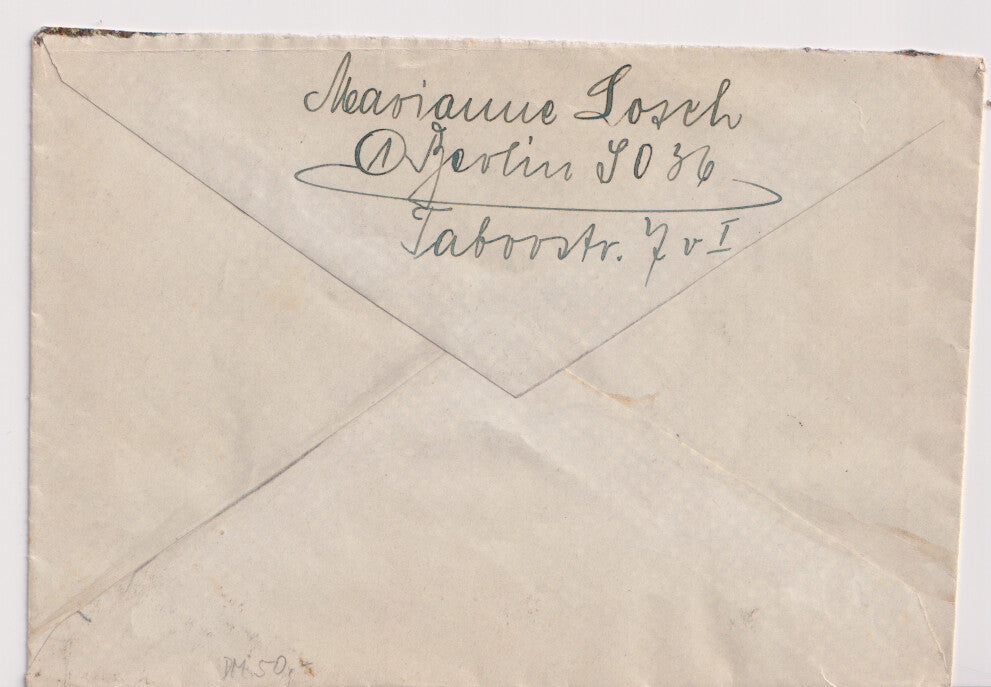 Marianne Losch
① Berlin SO 36
Taborstr. 7 v I
DM. 50,